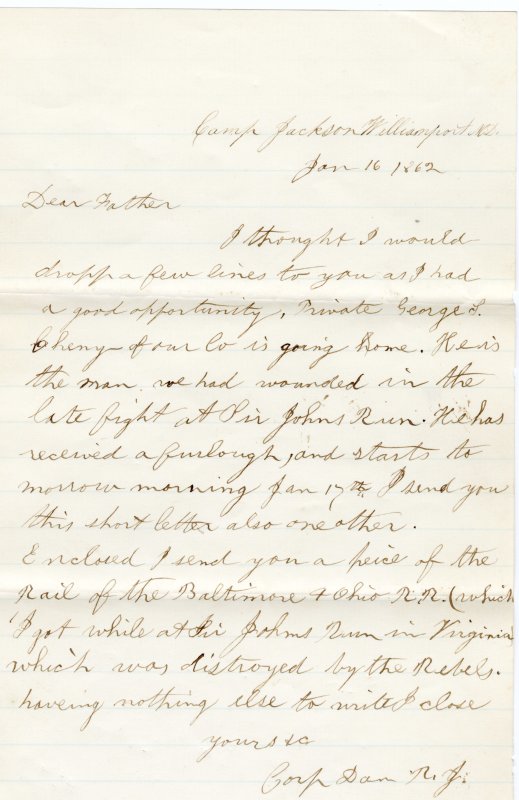 Camp Jackson Williamsport Md.
Jan 16 1862
Dear Father
I thought I would
dropp a few lines to you as I had
a good opportunity, Private George S.
Cheny of our Co is going home. He is
the man we had wounded in the
late fight at Sir Johns Run. He has
received a furlough, and starts to
morrow morning Jan 17th I send you
this short letter also one other.
Enclosed I send you a peice of the
Rail of the Baltimore & Ohio R.R. (which
I got while at Sir Johns Run in Virginia)
which was distroyed by the Rebels.
haveing nothing else to write I close
yours &c
Corp Dan R. J.